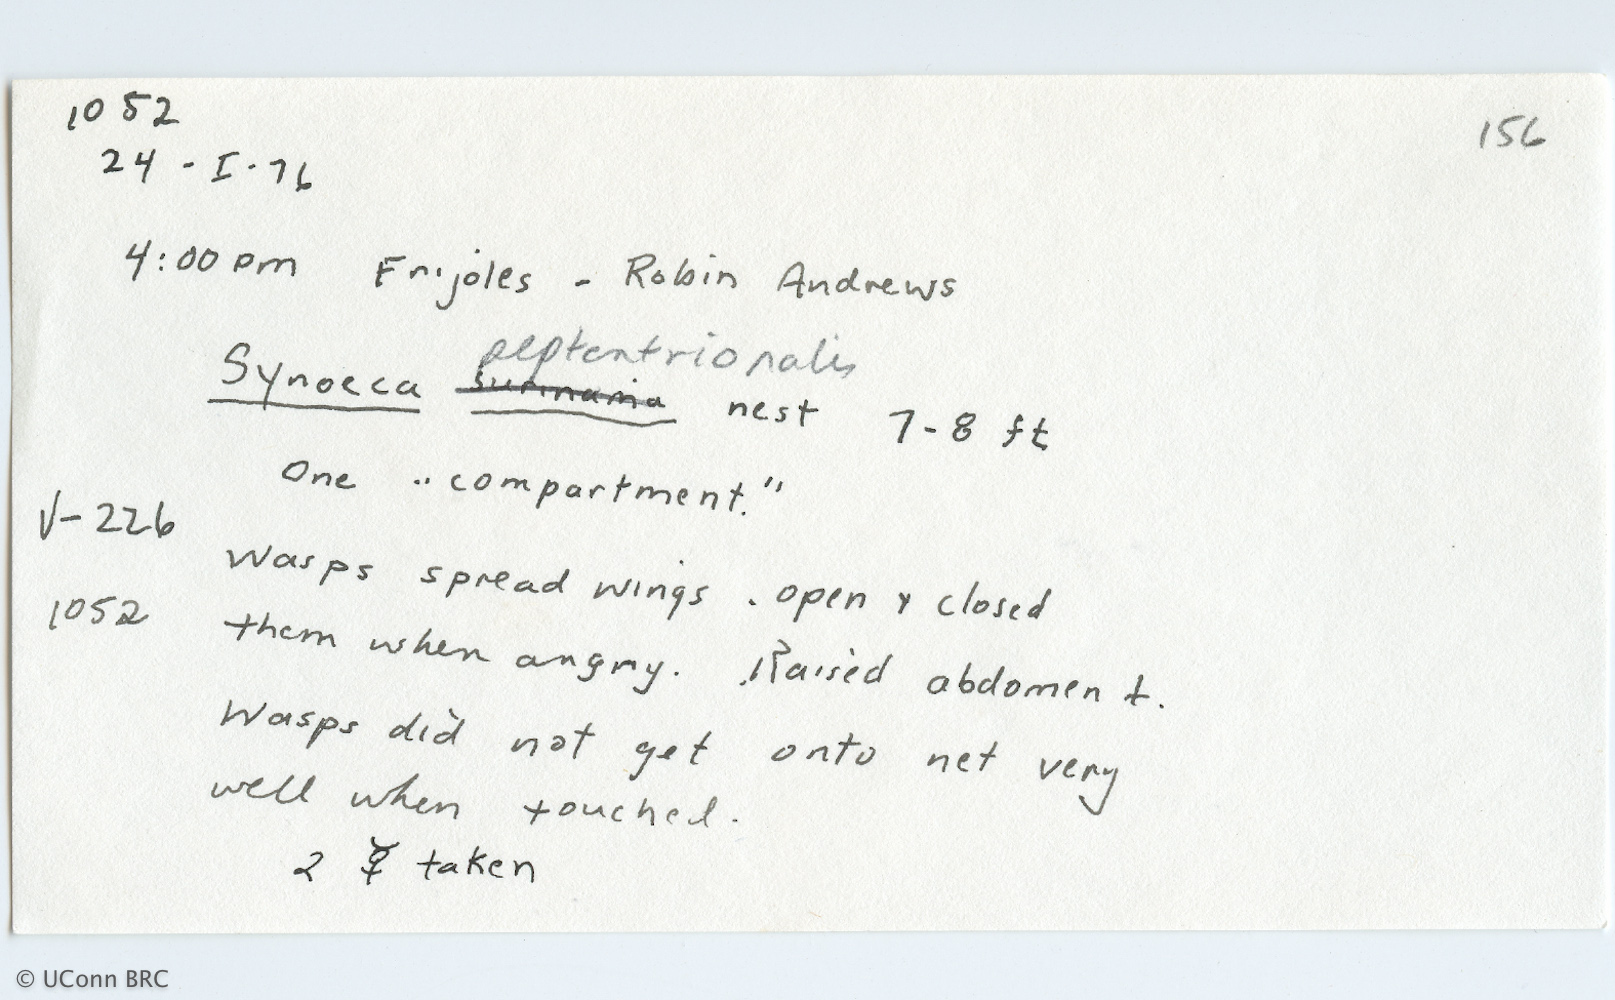 1052
156
24 - I - 76
4:00 pm Frijoles - Robin Andrews
peptentrionalis
Synoeca surinama nest 7-8 ft
One "compartment."
V-226
Wasps spread wings . open & closed
1052
them when angry. Raised abdomen t.
Wasps did not get onto net very
well when touched.
2 ☿ taken
© UConn BRC